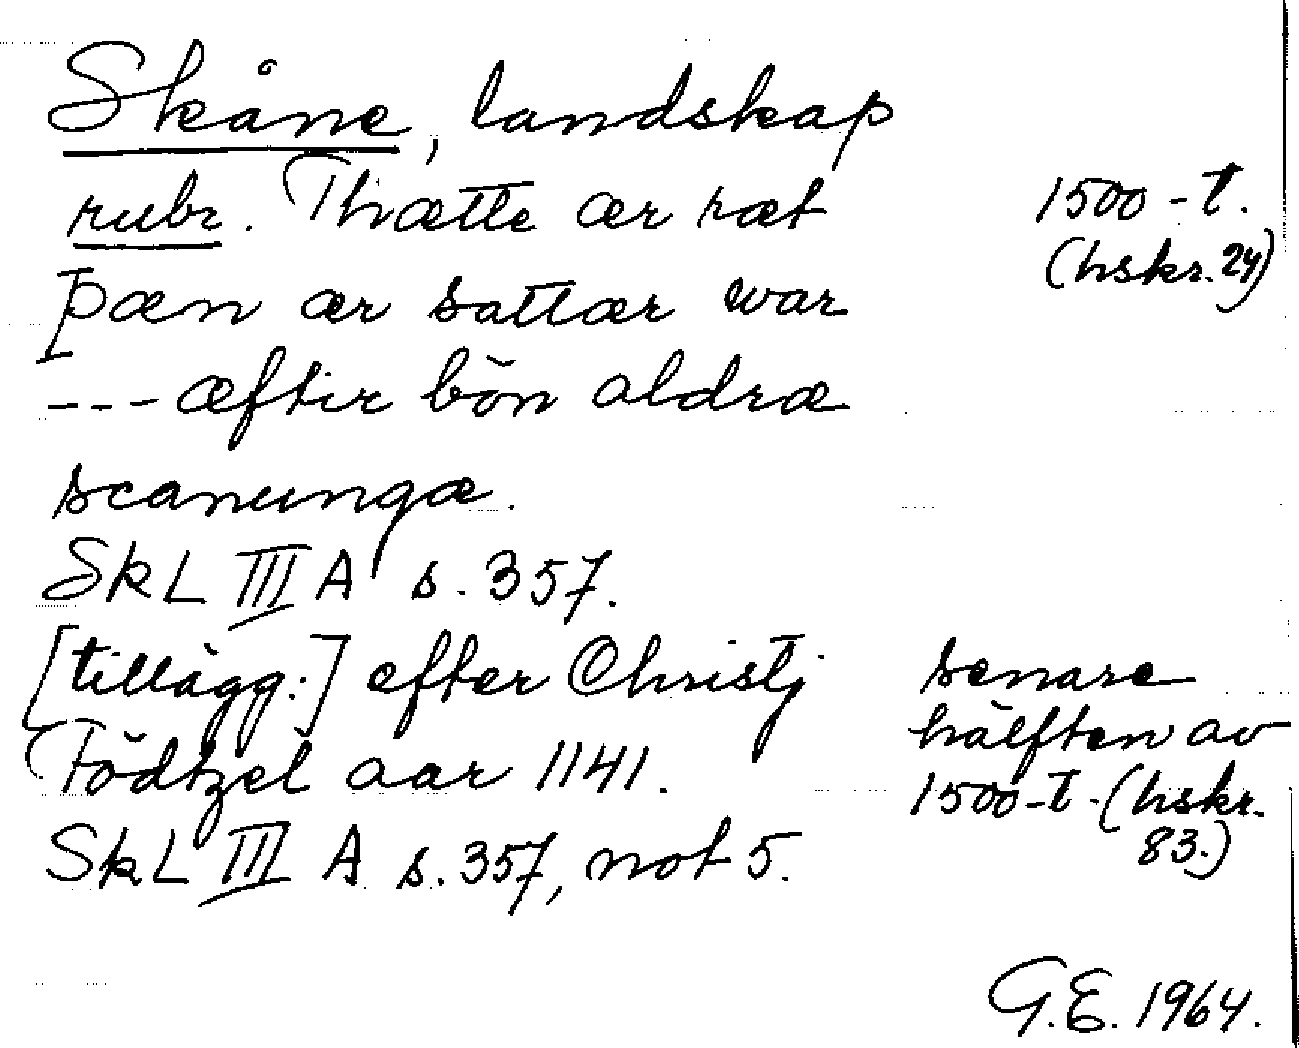 Skåne, landskap
rubr. Thrætte ær ræt 1500-t.
þæn ær sattær war (hskr. 24)
--- æftir bön aldræ
scanungæ.
SkL III A s. 357.
[tillägg:] efter Christj senare
Födtzel aar 1141. hälften av
1500-t. (hskr. 83.)
SkL III A s. 357, not 5.
G.E. 1964.